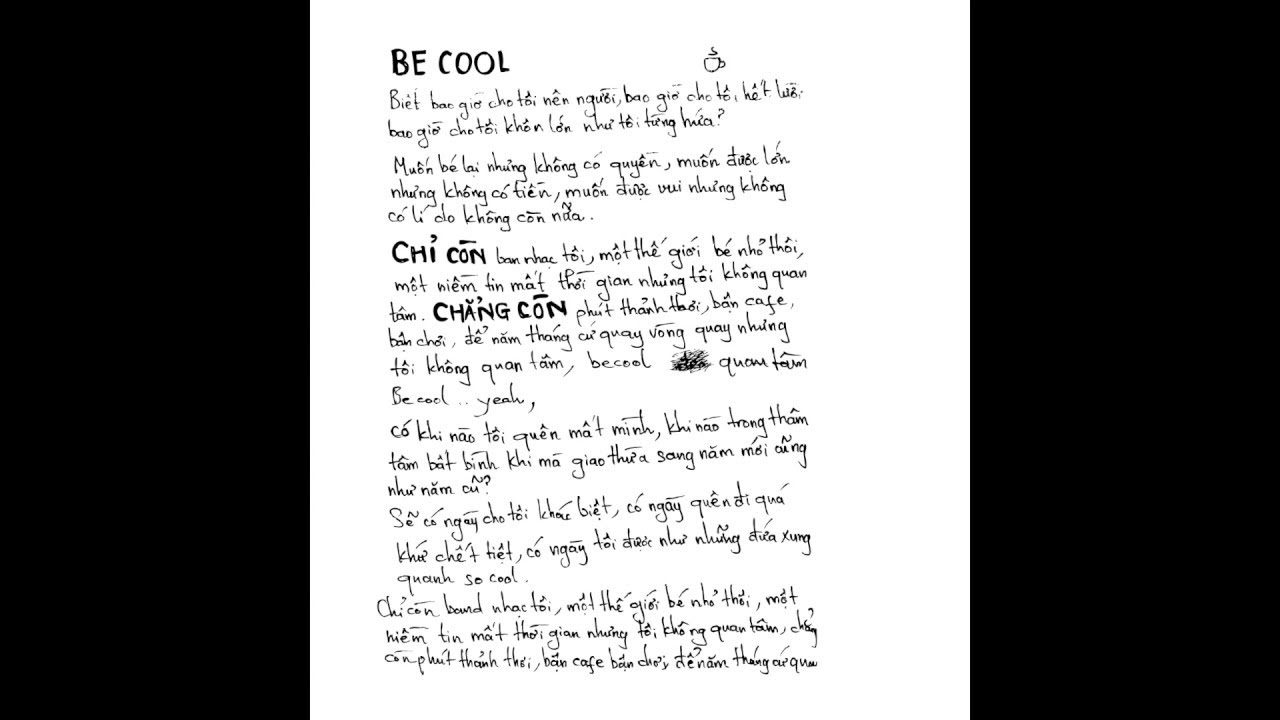 BE COOL
Biết bao giờ cho tôi nên người, bao giờ cho tôi hết lười
bao giờ cho tôi khôn lớn như tôi từng hứa?
Muốn bé lại nhưng không có quyền, muốn được lớn
nhưng không có tiền, muốn được vui nhưng không
có lí do không còn nữa.
CHỈ CÒN ban nhạc tồi, một thế giới bé nhỏ thôi,
một niềm tin mất thời gian nhưng tôi không quan
tâm. CHẲNG CÒN phút thảnh thơi, bận cafe,
bận chơi, để năm tháng cứ quay vòng quay nhưng
tôi không quan tâm, becool quan tâm
Be cool .. yeah,
có khi nào tôi quên mất mình, khi nào trong thâm
tâm bất bình khi mà giao thừa sang năm mới cũng
như năm cũ?
Sẽ có ngày cho tôi khác biệt, có ngày quên đi quá
khứ chết tiệt, có ngày tôi được như những đứa xung
quanh so cool.
Chỉ còn band nhạc tồi, một thế giới bé nhỏ thôi, một
niềm tin mất thời gian nhưng tôi không quan tâm, chẳng
còn phút thảnh thơi, bận cafe bận chơi, để năm tháng cứ quay